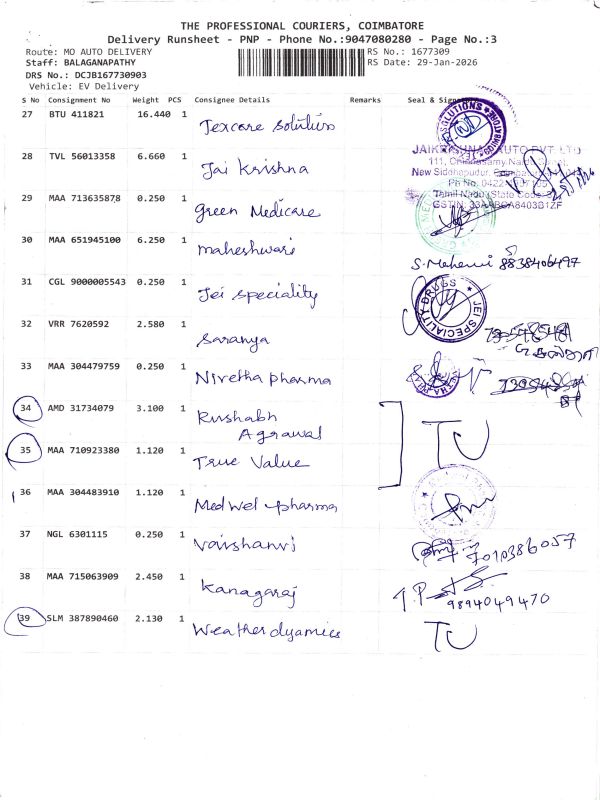 THE PROFESSIONAL COURIERS, COIMBATORE
Delivery Runsheet - PNP - Phone No.:9047080280 - Page No.:3
Route: MO AUTO DELIVERY RS No.: 1677309
Staff: BALAGANAPATHY RS Date: 29-Jan-2026
DRS No.: DCJB167730903
Vehicle: EV Delivery
S No Consignment No Weight PCS Consignee Details Remarks Seal &
27 BTU 411821 16.440 1 Texcare Solutions
28 TVL 56013358 6.660 1 Jai Krishna
JAIKRISHNA AUTO PVT LTD
111, Chinnasamy Naidu Street,
New Siddhapudur,
Ph No.
Tamil Nadu (State Code
GSTIN:
29 MAA 713635878 0.250 1 Green Medicare
30 MAA 651945100 6.250 1 maheshwari
8838406497
31 CGL 9000005543 0.250 1 Jei speciality
JEI SPECIALITY DRUGS
32 VRR 7620592 2.580 1 Saranya
33 MAA 304479759 0.250 1 Nivetha pharma
34 AMD 31734079 3.100 1 Rushabh
Agrawal
TU
35 MAA 710923380 1.120 1 True Value
36 MAA 304483910 1.120 1 Medwel pharma
37 NGL 6301115 0.250 1 Vaishanvi
7010386057
38 MAA 715063909 2.450 1 Kanagaraj
9894049470
39 SLM 387890460 2.130 1 Weather dyamics TU